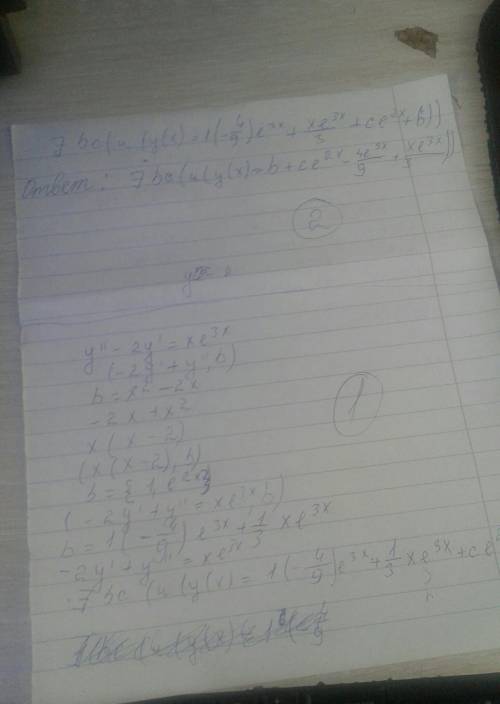 7 bc (u(y(x) = 1(-4/9)e^3x + xe^3x/3 + ce^2x + b))
Ответ: 7 bc (u(y(x) = b + ce^2x - 4e^3x/9 + xe^3x/3))
2
y'' - 2y' = xe^3x
(-2y' + y'', b)
b = x^2 - 2x
-2x + x^2
x(x - 2)
(x(x - 2), b)
b = {1, e^2x}
(-2y' + y'' = xe^3x, b)
b = 1(-4/9)e^3x + 1/3 xe^3x
-2y' + y'' = xe^3x
7 bc (u(y(x) = 1(-4/9)e^3x + 1/3 xe^3x + ce^2
1